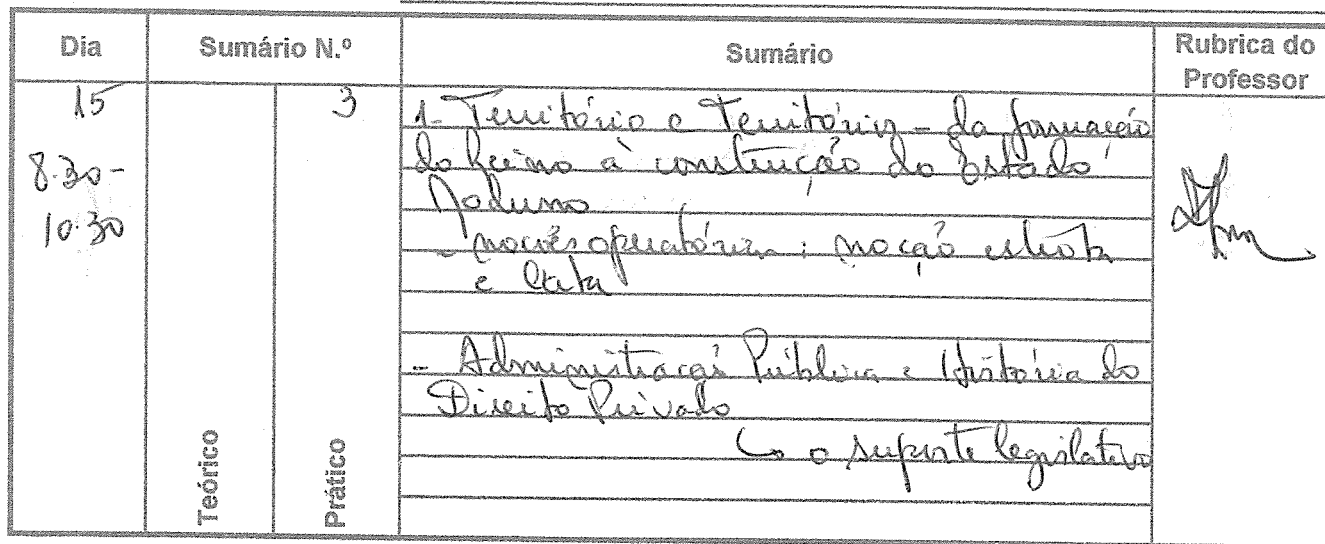 Dia Sumário N.º Sumário Rubrica do Professor
15 3 1- Território e Territórios - da formação
do Reino à construção do Estado
8.30- Moderno
10.30 - noções operatórias: noção estrita
e lata
- Administração Pública e História do
Direito Privado
↳ o suporte legislativo
Teórico Prático